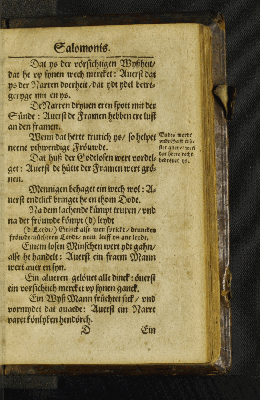 Salomonis.
Dat ys der vörsichtigen Wyßheit/
dat he vp synen wech mercket: Auerst dat
ys der Narren dorheit/ dat ydt ydel bere-
gerye mit en ys.
De Narren dryuen eren spott mit der
Sünde: Auerst de Framen hebben ere lust
an den framen.
Wenn dat herte trurich ys/ so helpet
neene vthwendige Fröuwde.
Dat huß der Godlosen wert vordel-
get: Auerst de hütte der Framen wert grö-
nen.
Mennigen behaget ein wech wol: A-
uerst endtlick bringet he en thom Dode.
Na dem lachende kümpt truren/ vnd
na der fröuwde kömpt (d) leydt
(d Leydt/) Drinck alse wen
fröuwde
Einem losen Minschen wert ydt gahn/
alse he handelt: Auerst ein fraem Mann
wert auer en syn.
Ein aluern gelöuet alle dinck: öuerst
ein vorsichtich mercket vp synen ganck.
Ein Wyß Mann früchtet sick/ vnd
vormydet dat quade: Auerst ein Narre
varet könlyken hendörch.
D Ein